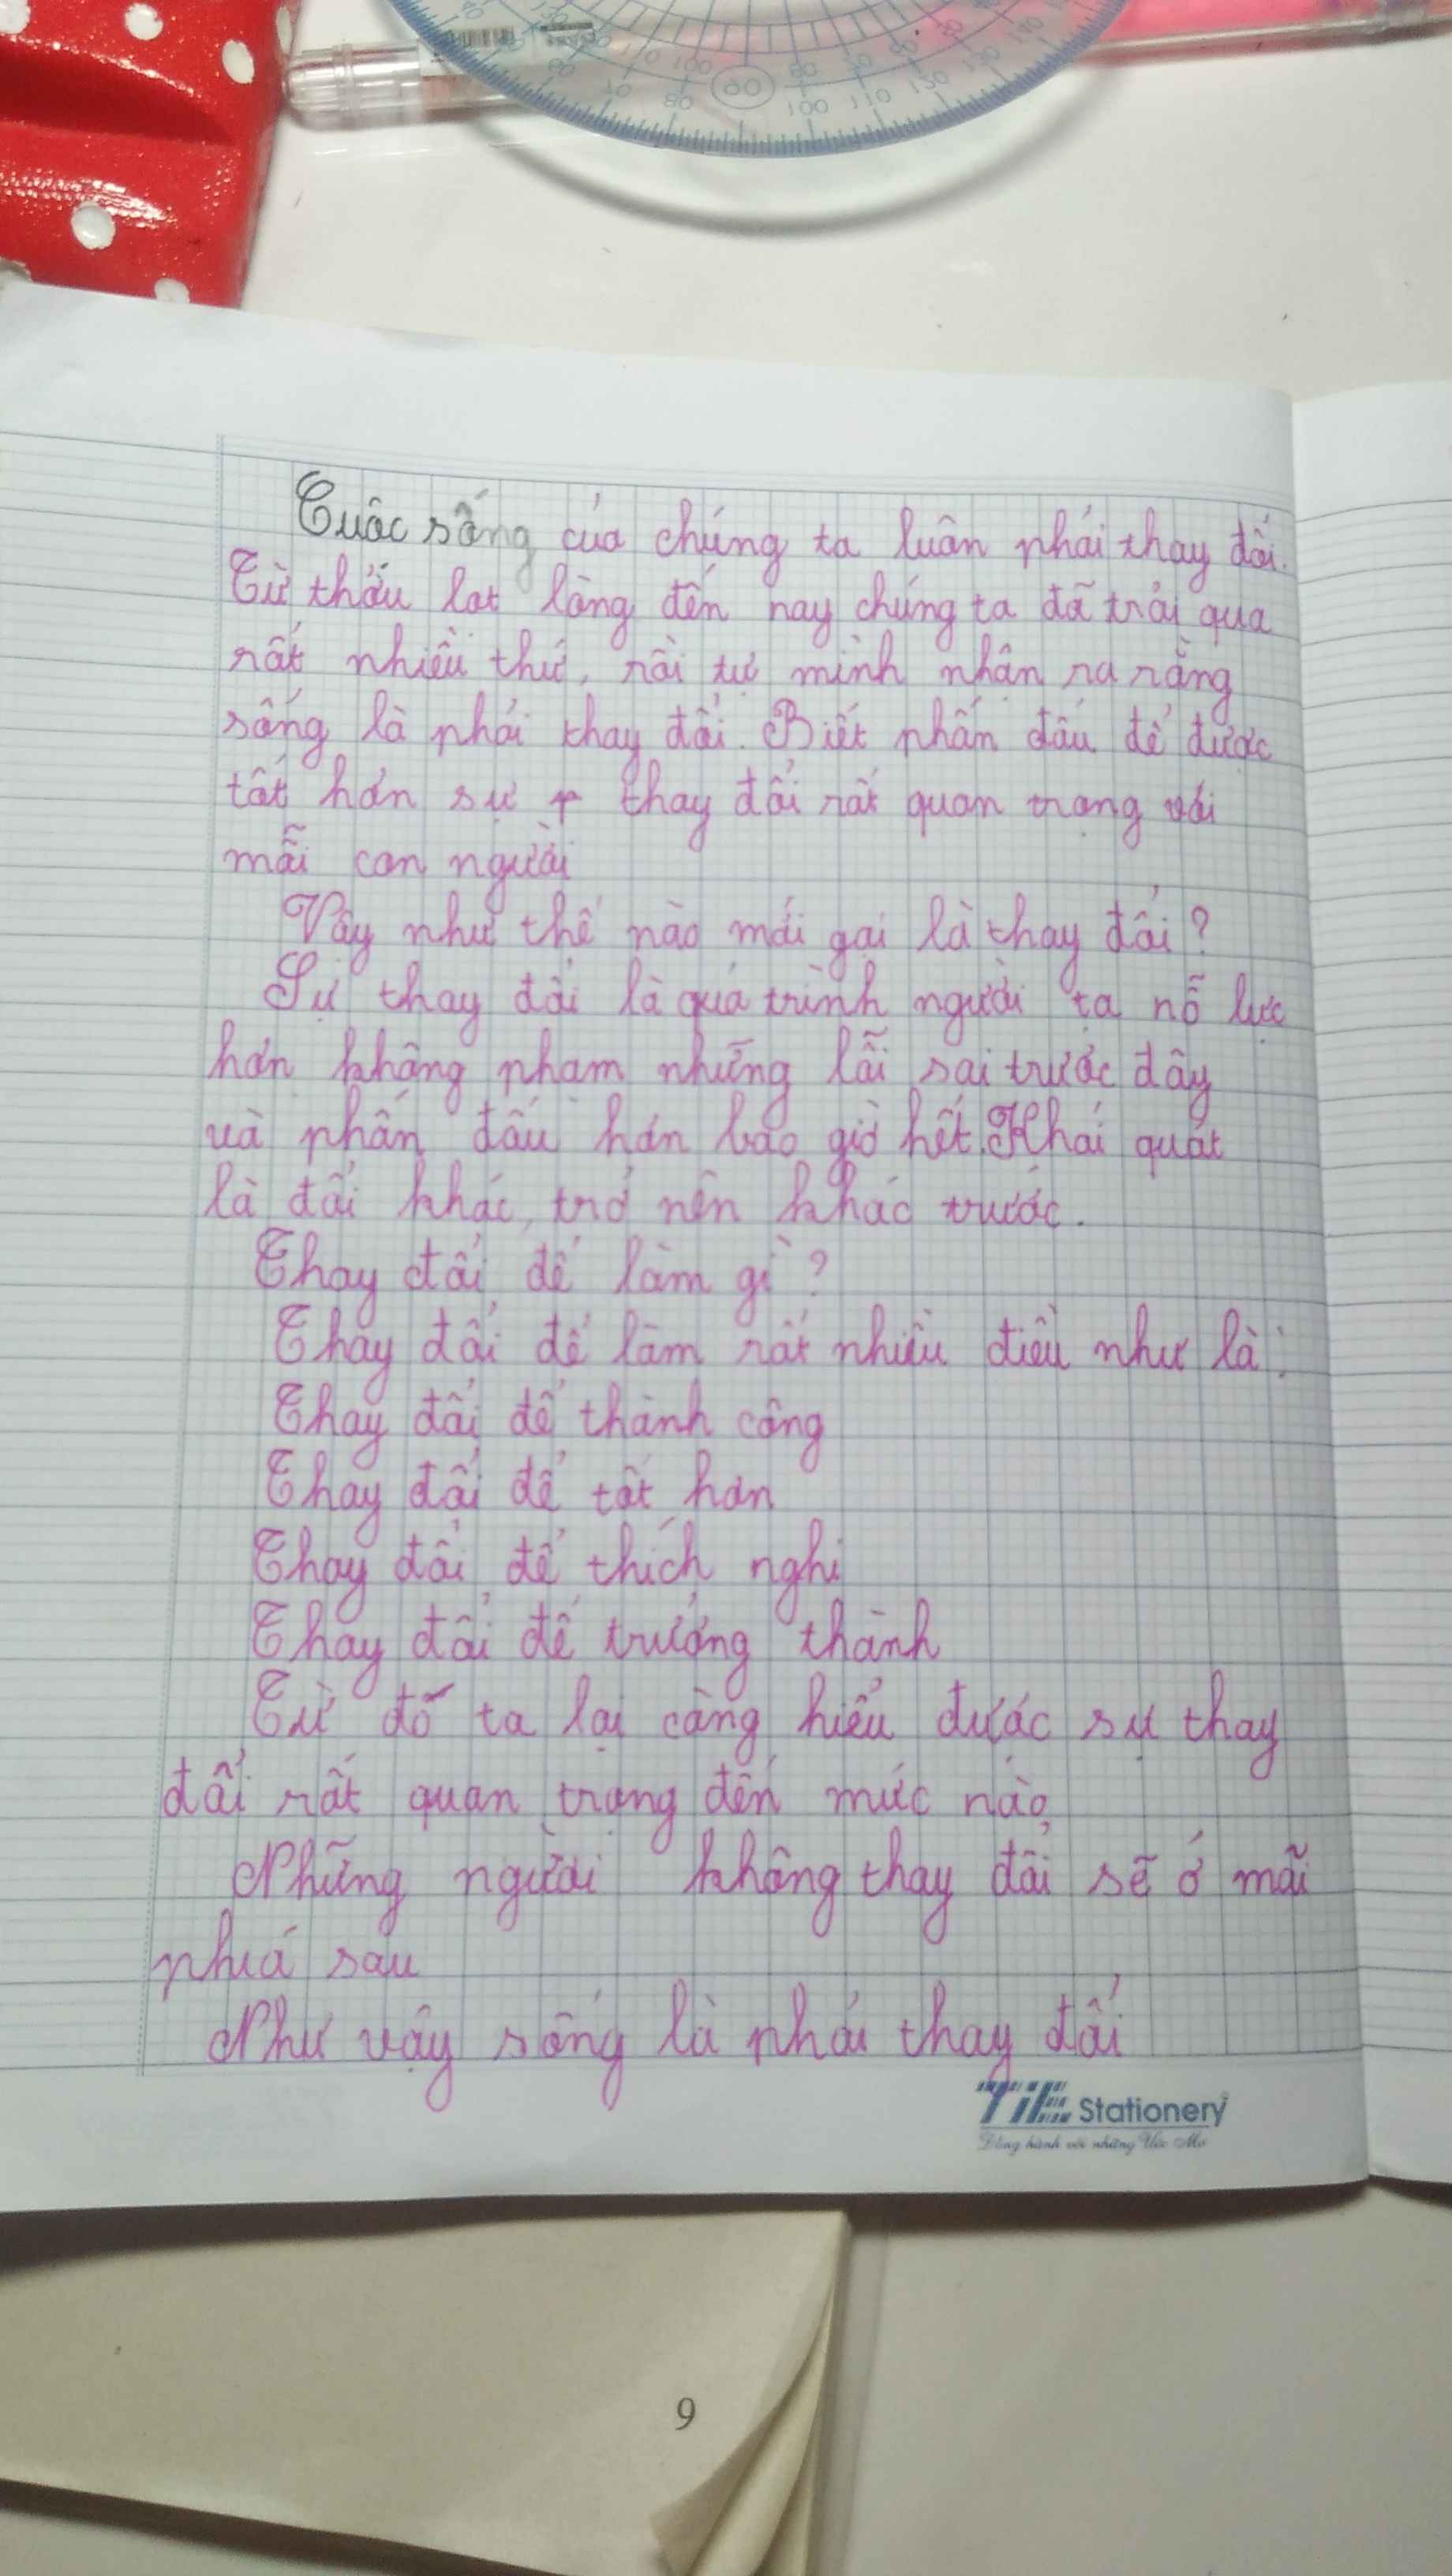 90
100
110
120
80
Cuộc sống của chúng ta luôn phải thay đổi.
Từ thởu lọt lòng đến nay chúng ta đã trải qua
rất nhiều thứ, rồi tự mình nhận ra rằng
sống là phải thay đổi. Biết phấn đấu để được
tốt hơn sự thay đổi rất quan trọng với
mỗi con người
Vậy như thế nào mới gọi là thay đổi?
Sự thay đổi là quá trình người ta nỗ lực
hơn không phạm những lỗi sai trước đây
và phấn đấu hơn bao giờ hết. Khái quát
là đổi khác, trở nên khác trước.
Thay đổi để làm gì?
Thay đổi để làm rất nhiều điều như là:
Thay đổi để thành công
Thay đổi để tốt hơn
Thay đổi để thích nghi
Thay đổi để trưởng thành
Từ đó ta lại càng hiểu được sự thay
đổi rất quan trọng đến mức nào
Những người không thay đổi sẽ ở mãi
phía sau
Như vậy sống là phải thay đổi
TiE Stationery
Đồng hành với những Ước Mơ
9